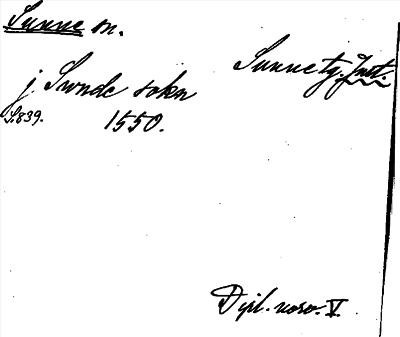 Sunne sn.
Sunne tg. Jmtl.
j Swnde sokn
S.839. 1550.
Dipl. norv. V.